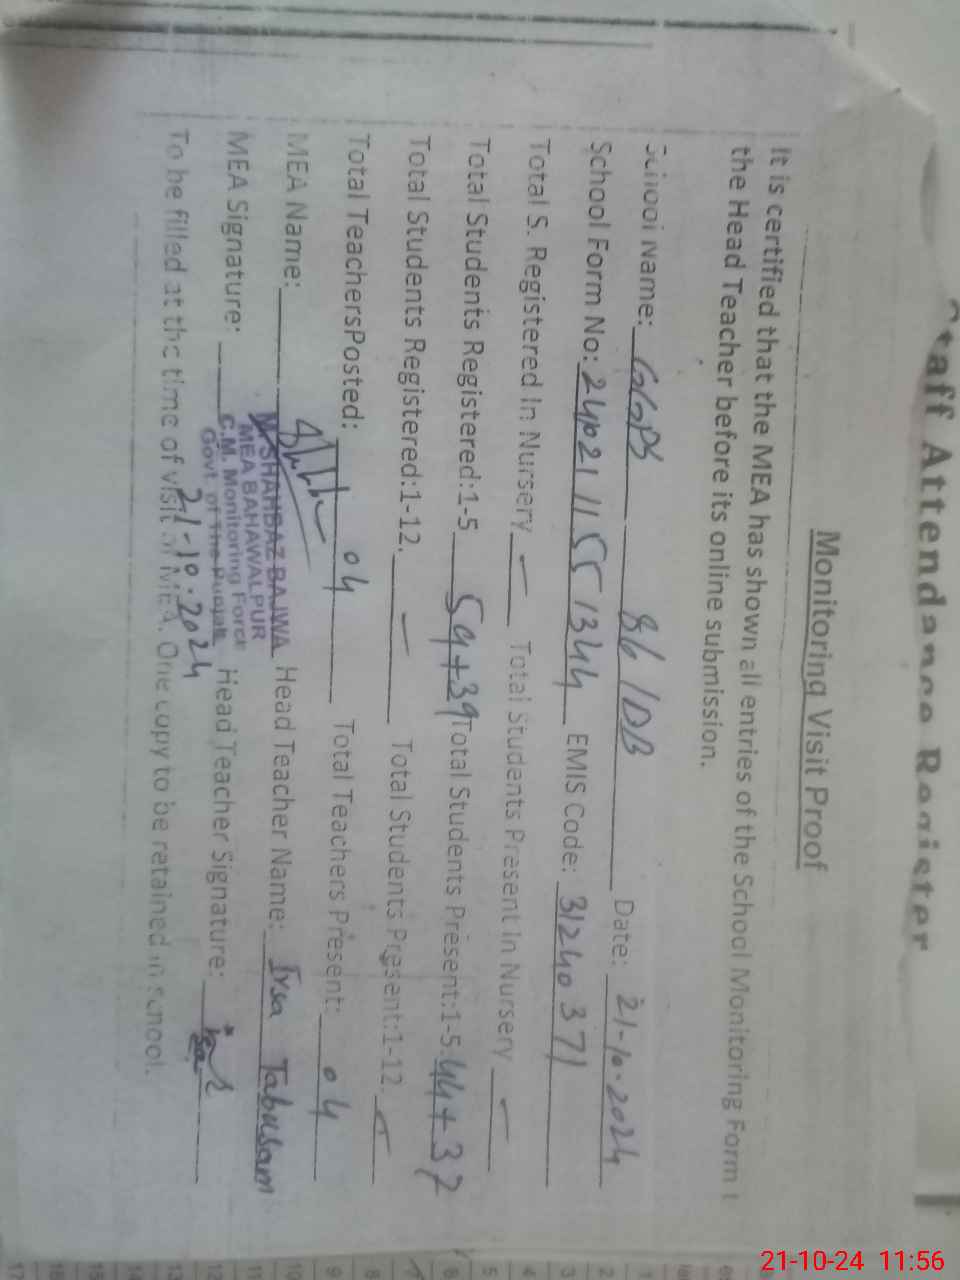 Staff Attendance Register
Monitoring Visit Proof
It is certified that the MEA has shown all entries of the School Monitoring Form t
the Head Teacher before its online submission.
School Name: GGPS 86/DB Date: 21-10-2024
School Form No: EMIS Code: 31240371
Total S. Registered In Nursery — Total Students Present In Nursery —
Total Students Registered:1-5 59+39 Total Students Present:1-5. 44+37
Total Students Registered:1-12. — Total Students Present:1-12. —
Total TeachersPosted: 04 Total Teachers Present: 04
MEA Name: SHAHBAZ BAJWA Head Teacher Name: Irsa Tabassam
MEA BAHAWALPUR
MEA Signature: C.M. Monitoring Force Head Teacher Signature:
Govt. of The Punjab
21-10-2024
To be filled at the time of visit of MEA. One copy to be retained in school.
1
2
3
4
5
6
7
8
9
10
11
13
14
15
16
17
21-10-24 11:56